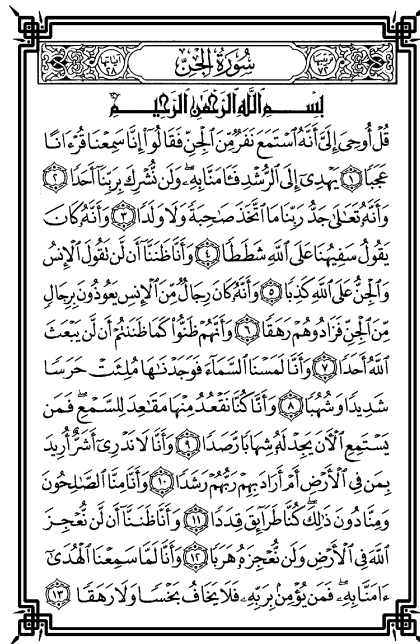 ترتيبها ٧٢
سُورَةُ الْجِنِّ
آياتها ٢٨
بِسْمِ ٱللَّهِ ٱلرَّحْمَٰنِ ٱلرَّحِيمِ
قُلْ أُوحِىَ إِلَىَّ أَنَّهُ ٱسْتَمَعَ نَفَرٌ مِّنَ ٱلْجِنِّ فَقَالُوٓا۟ إِنَّا سَمِعْنَا قُرْءَانًا
عَجَبًا ١ يَهْدِىٓ إِلَى ٱلرُّشْدِ فَـَٔامَنَّا بِهِۦ ۖ وَلَن نُّشْرِكَ بِرَبِّنَآ أَحَدًا ٢
وَأَنَّهُۥ تَعَٰلَىٰ جَدُّ رَبِّنَا مَا ٱتَّخَذَ صَٰحِبَةً وَلَا وَلَدًا ٣ وَأَنَّهُۥ كَانَ
يَقُولُ سَفِيهُنَا عَلَى ٱللَّهِ شَطَطًا ٤ وَأَنَّا ظَنَنَّآ أَن لَّن تَقُولَ ٱلْإِنسُ
وَٱلْجِنُّ عَلَى ٱللَّهِ كَذِبًا ٥ وَأَنَّهُۥ كَانَ رِجَالٌ مِّنَ ٱلْإِنسِ يَعُوذُونَ بِرِجَالٍ
مِّنَ ٱلْجِنِّ فَزَادُوهُمْ رَهَقًا ٦ وَأَنَّهُمْ ظَنُّوا۟ كَمَا ظَنَنتُمْ أَن لَّن يَبْعَثَ
ٱللَّهُ أَحَدًا ٧ وَأَنَّا لَمَسْنَا ٱلسَّمَآءَ فَوَجَدْنَٰهَا مُلِئَتْ حَرَسًا
شَدِيدًا وَشُهُبًا ٨ وَأَنَّا كُنَّا نَقْعُدُ مِنْهَا مَقَٰعِدَ لِلسَّمْعِ ۖ فَمَن
يَسْتَمِعِ ٱلْـَٔانَ يَجِدْ لَهُۥ شِهَابًا رَّصَدًا ٩ وَأَنَّا لَا نَدْرِىٓ أَشَرٌّ أُرِيدَ
بِمَن فِى ٱلْأَرْضِ أَمْ أَرَادَ بِهِمْ رَبُّهُمْ رَشَدًا ١٠ وَأَنَّا مِنَّا ٱلصَّٰلِحُونَ
وَمِنَّا دُونَ ذَٰلِكَ ۖ كُنَّا طَرَآئِقَ قِدَدًا ١١ وَأَنَّا ظَنَنَّآ أَن لَّن نُّعْجِزَ
ٱللَّهَ فِى ٱلْأَرْضِ وَلَن نُّعْجِزَهُۥ هَرَبًا ١٢ وَأَنَّا لَمَّا سَمِعْنَا ٱلْهُدَىٰٓ
ءَامَنَّا بِهِۦ ۖ فَمَن يُؤْمِنۢ بِرَبِّهِۦ فَلَا يَخَافُ بَخْسًا وَلَا رَهَقًا ١٣